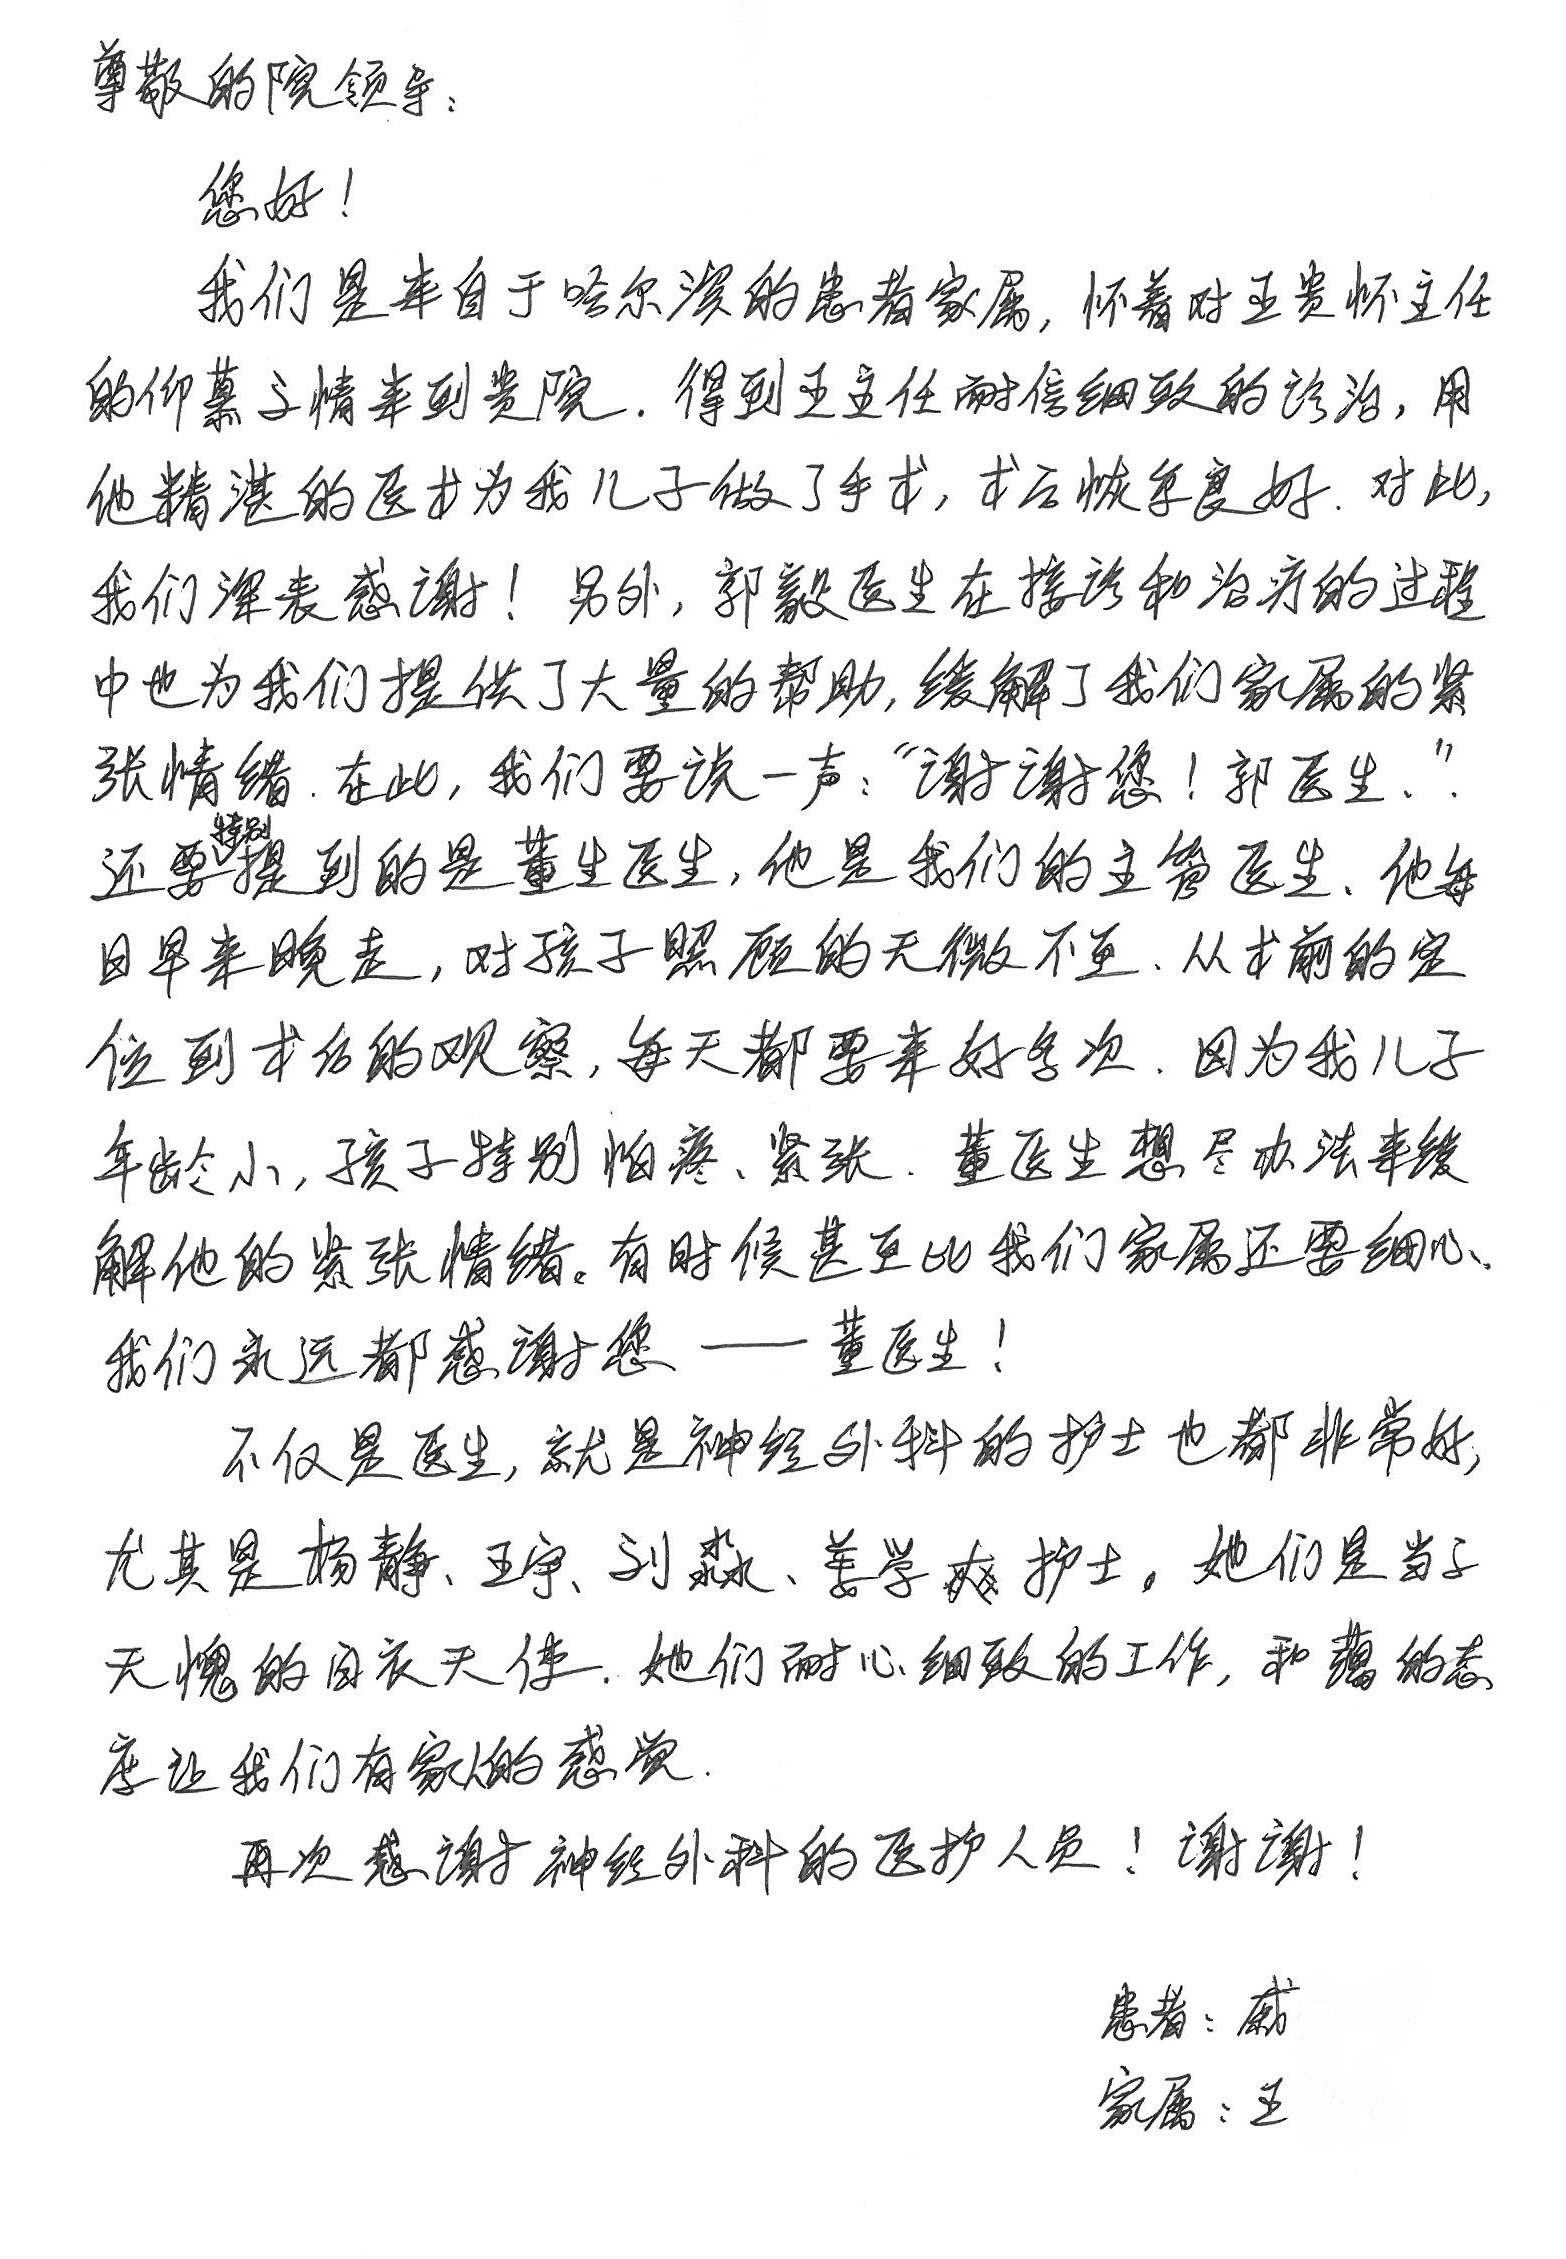 尊敬的院领导：
您好！
我们是来自于哈尔滨的患者家属，怀着对王贵怀主任
的仰慕之情来到贵院．得到王主任耐信细致的诊治，用
他精湛的医术为我儿子做了手术，术后恢复良好．对此，
我们深表感谢！另外，郭毅医生在接诊和治疗的过程
中也为我们提供了大量的帮助，缓解了我们家属的紧
张情绪．在此，我们要说一声：“谢谢您！郭医生．”．
还要特别提到的是董生医生，他是我们的主管医生、他每
日早来晚走，对孩子照顾的无微不至．从术前的定
位到术后的观察，每天都要来好多次．因为我儿子
年龄小，孩子特别怕疼、紧张．董医生想尽办法来缓
解他的紧张情绪。有时候甚至比我们家属还要细心、
我们永远都感谢您——董医生！
不仅是医生，就是神经外科的护士也都非常好，
尤其是杨静、王宇、刘淼、姜学爽护士。她们是当之
无愧的白衣天使．她们耐心细致的工作，和蔼的态
度让我们有家人的感觉．
再次感谢神经外科的医护人员！谢谢！
患者：戚
家属：王